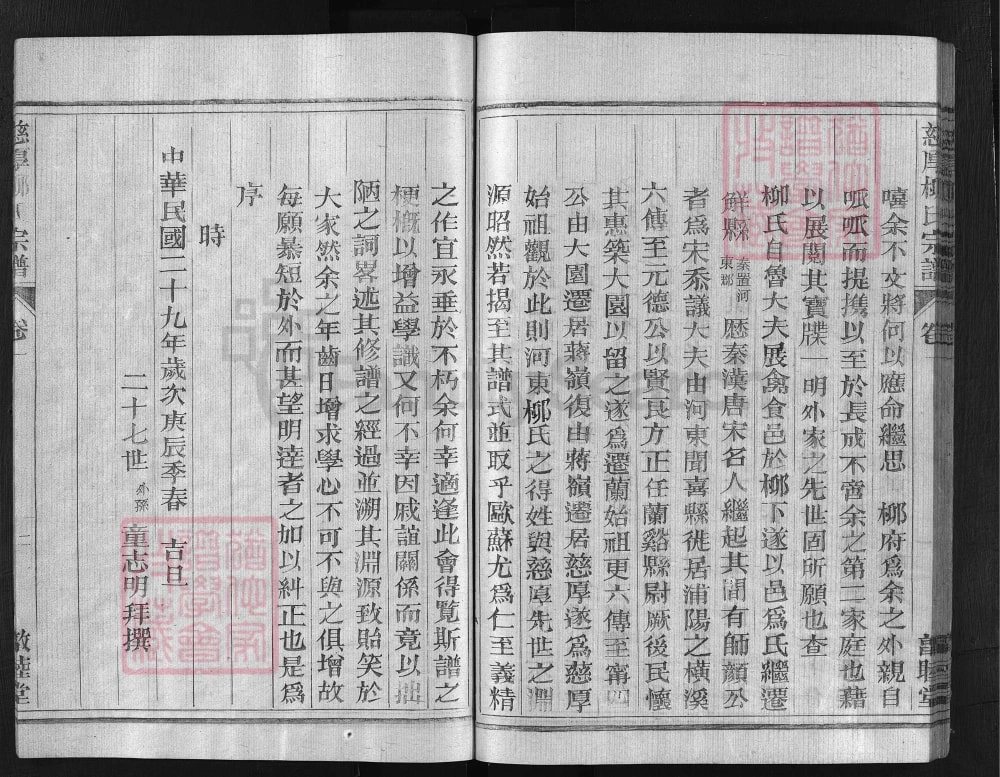 慈厚柳氏宗譜
卷一
敦睦堂
嘻余不文將何以應命繼思　柳府爲余之外親自
呱呱而提攜以至於長成不啻余之第二家庭也藉
以展閱其寶牒一明外家之先世固所願也查
柳氏自魯大夫展禽食邑於柳下遂以邑爲氏繼遷
解縣秦置河東郡歷秦漢唐宋名人繼起其間有師顏公
者爲宋叅議大夫由河東聞喜縣徙居浦陽之橫溪
六傳至元德公以賢良方正任蘭谿縣尉厥後民懷
其惠築大園以留之遂爲遷蘭始祖更六傳至甯四
公由大園遷居蔣嶺復由蔣嶺遷居慈厚遂爲慈厚
始祖觀於此則河東柳氏之得姓與慈厚先世之淵
源昭然若揭至其譜式並取乎歐蘇尤爲仁至義精
之作宜永垂於不朽余何幸適逢此會得覽斯譜之
梗概以增益學識又何不幸因戚誼關係而竟以拙
陋之詞畧述其修譜之經過並溯其淵源致貽笑於
大家然余之年齒日增求學心不可不與之俱增故
每願暴短於外而甚望明達者之加以糾正也是爲
序
時
中華民國二十九年歲次庚辰季春　吉旦
二十七世外孫童志明拜撰
慈厚柳氏宗譜
卷一
二
敦睦堂